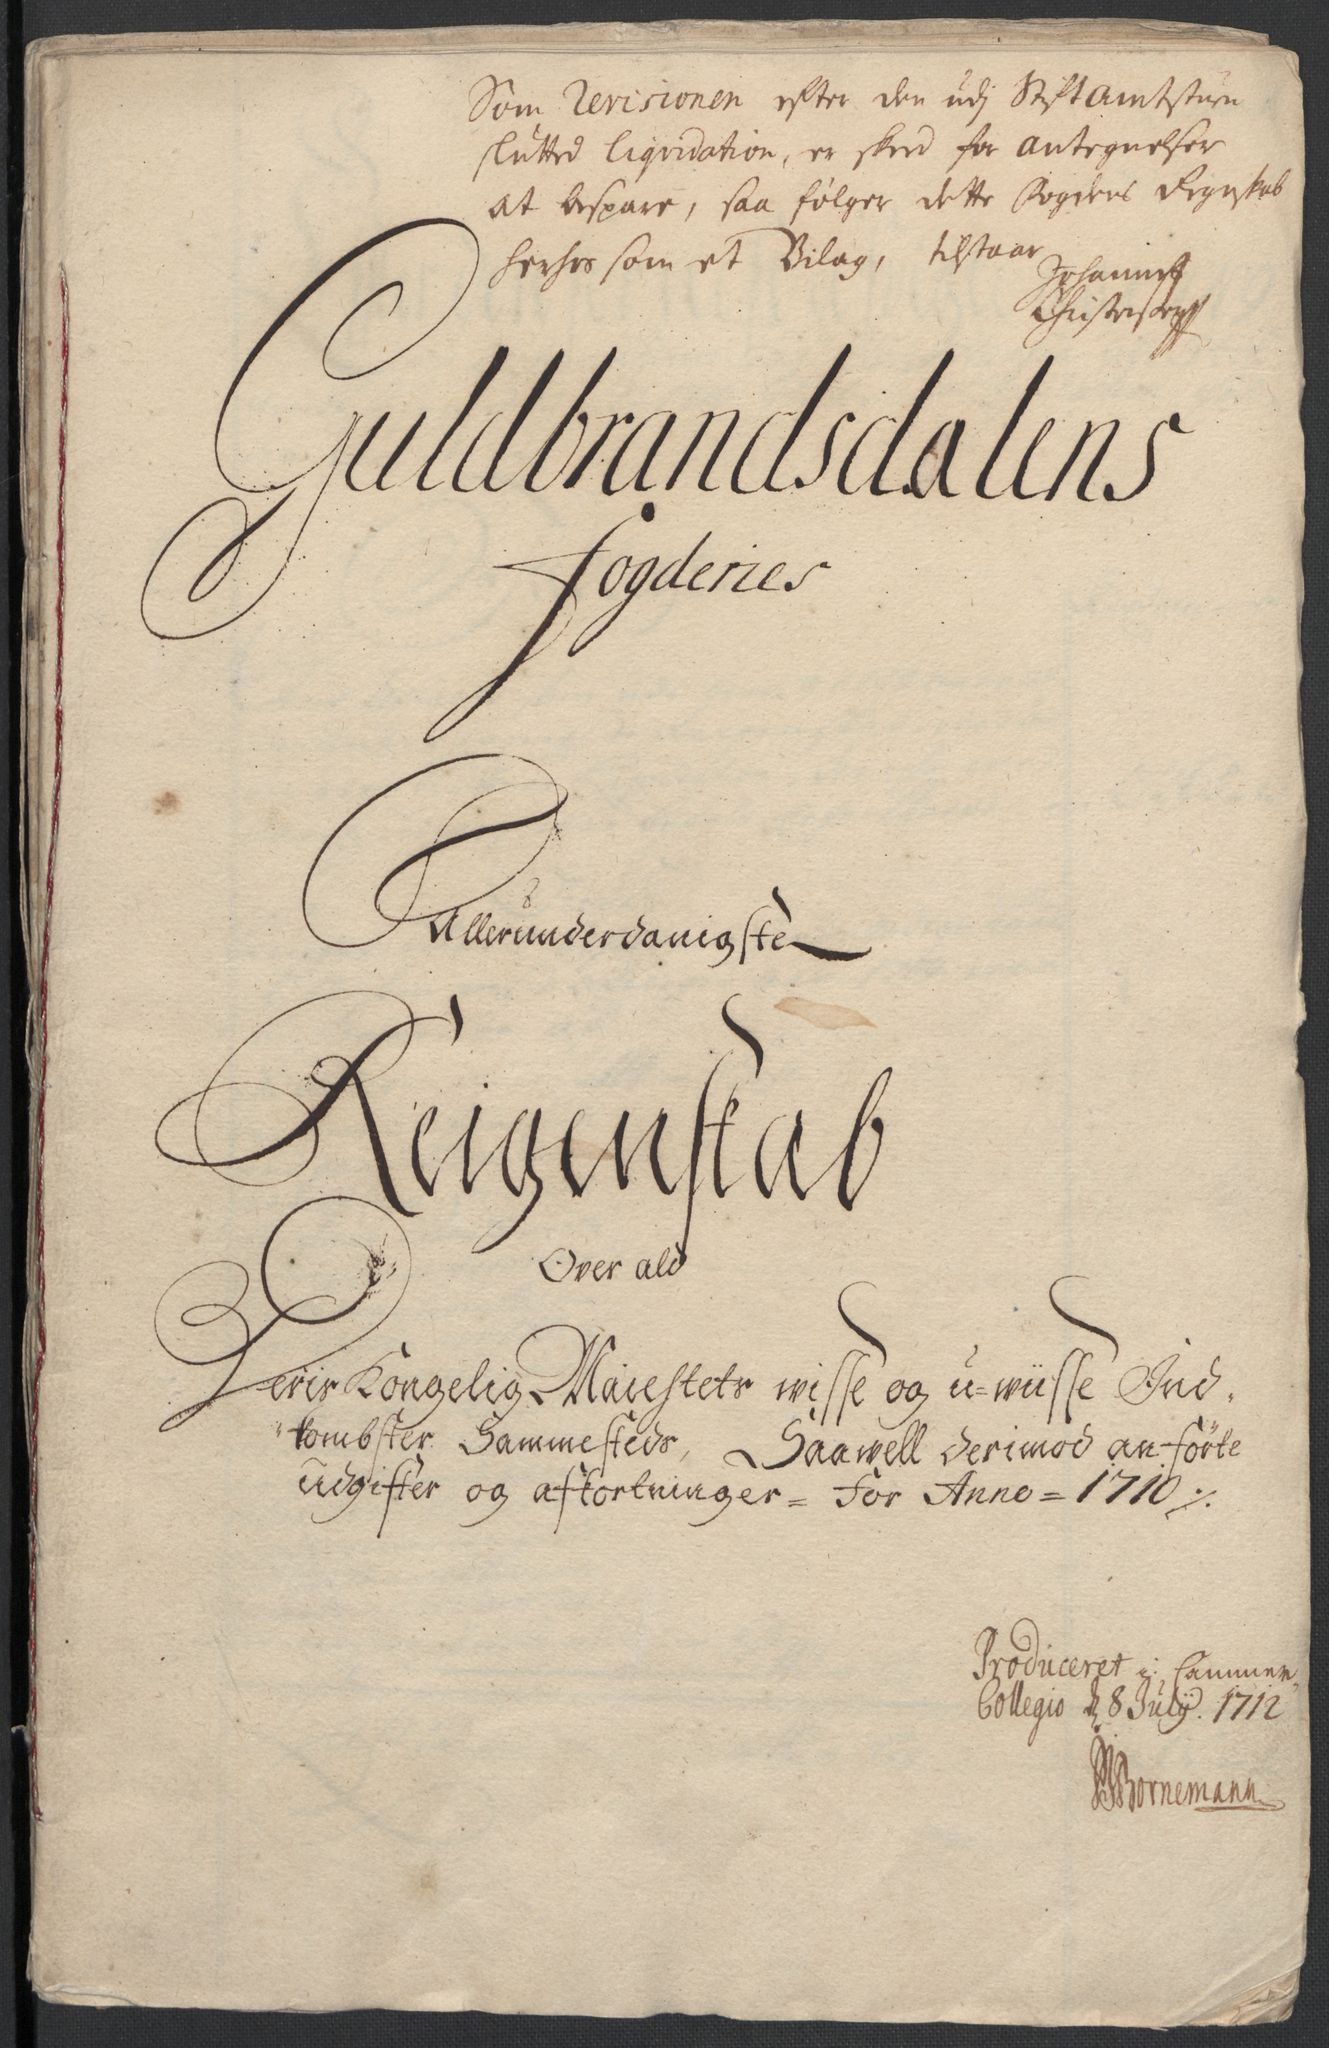 Som Revisionen efter den udj Stiftamtstuen
slutted liqvidation, er skeed for antegnelser
at bespare, saa følger dette Fogdens Regnskab
herhos som et Bilag, tilstaar
Johannes
Guldbrandsdalens
fogderies
Allerunderdanigste
Reigenskab
Over ald
Deris Kongelig Maiestets wisse og u=wisse Ind-
kombster Sammesteds, Saawell derimod anförte
udgifter og afkortninger = for Anno = 1710 ⁒
Produceret i Cammer
Collegio d 8 Julÿ. 1712
Bornemann